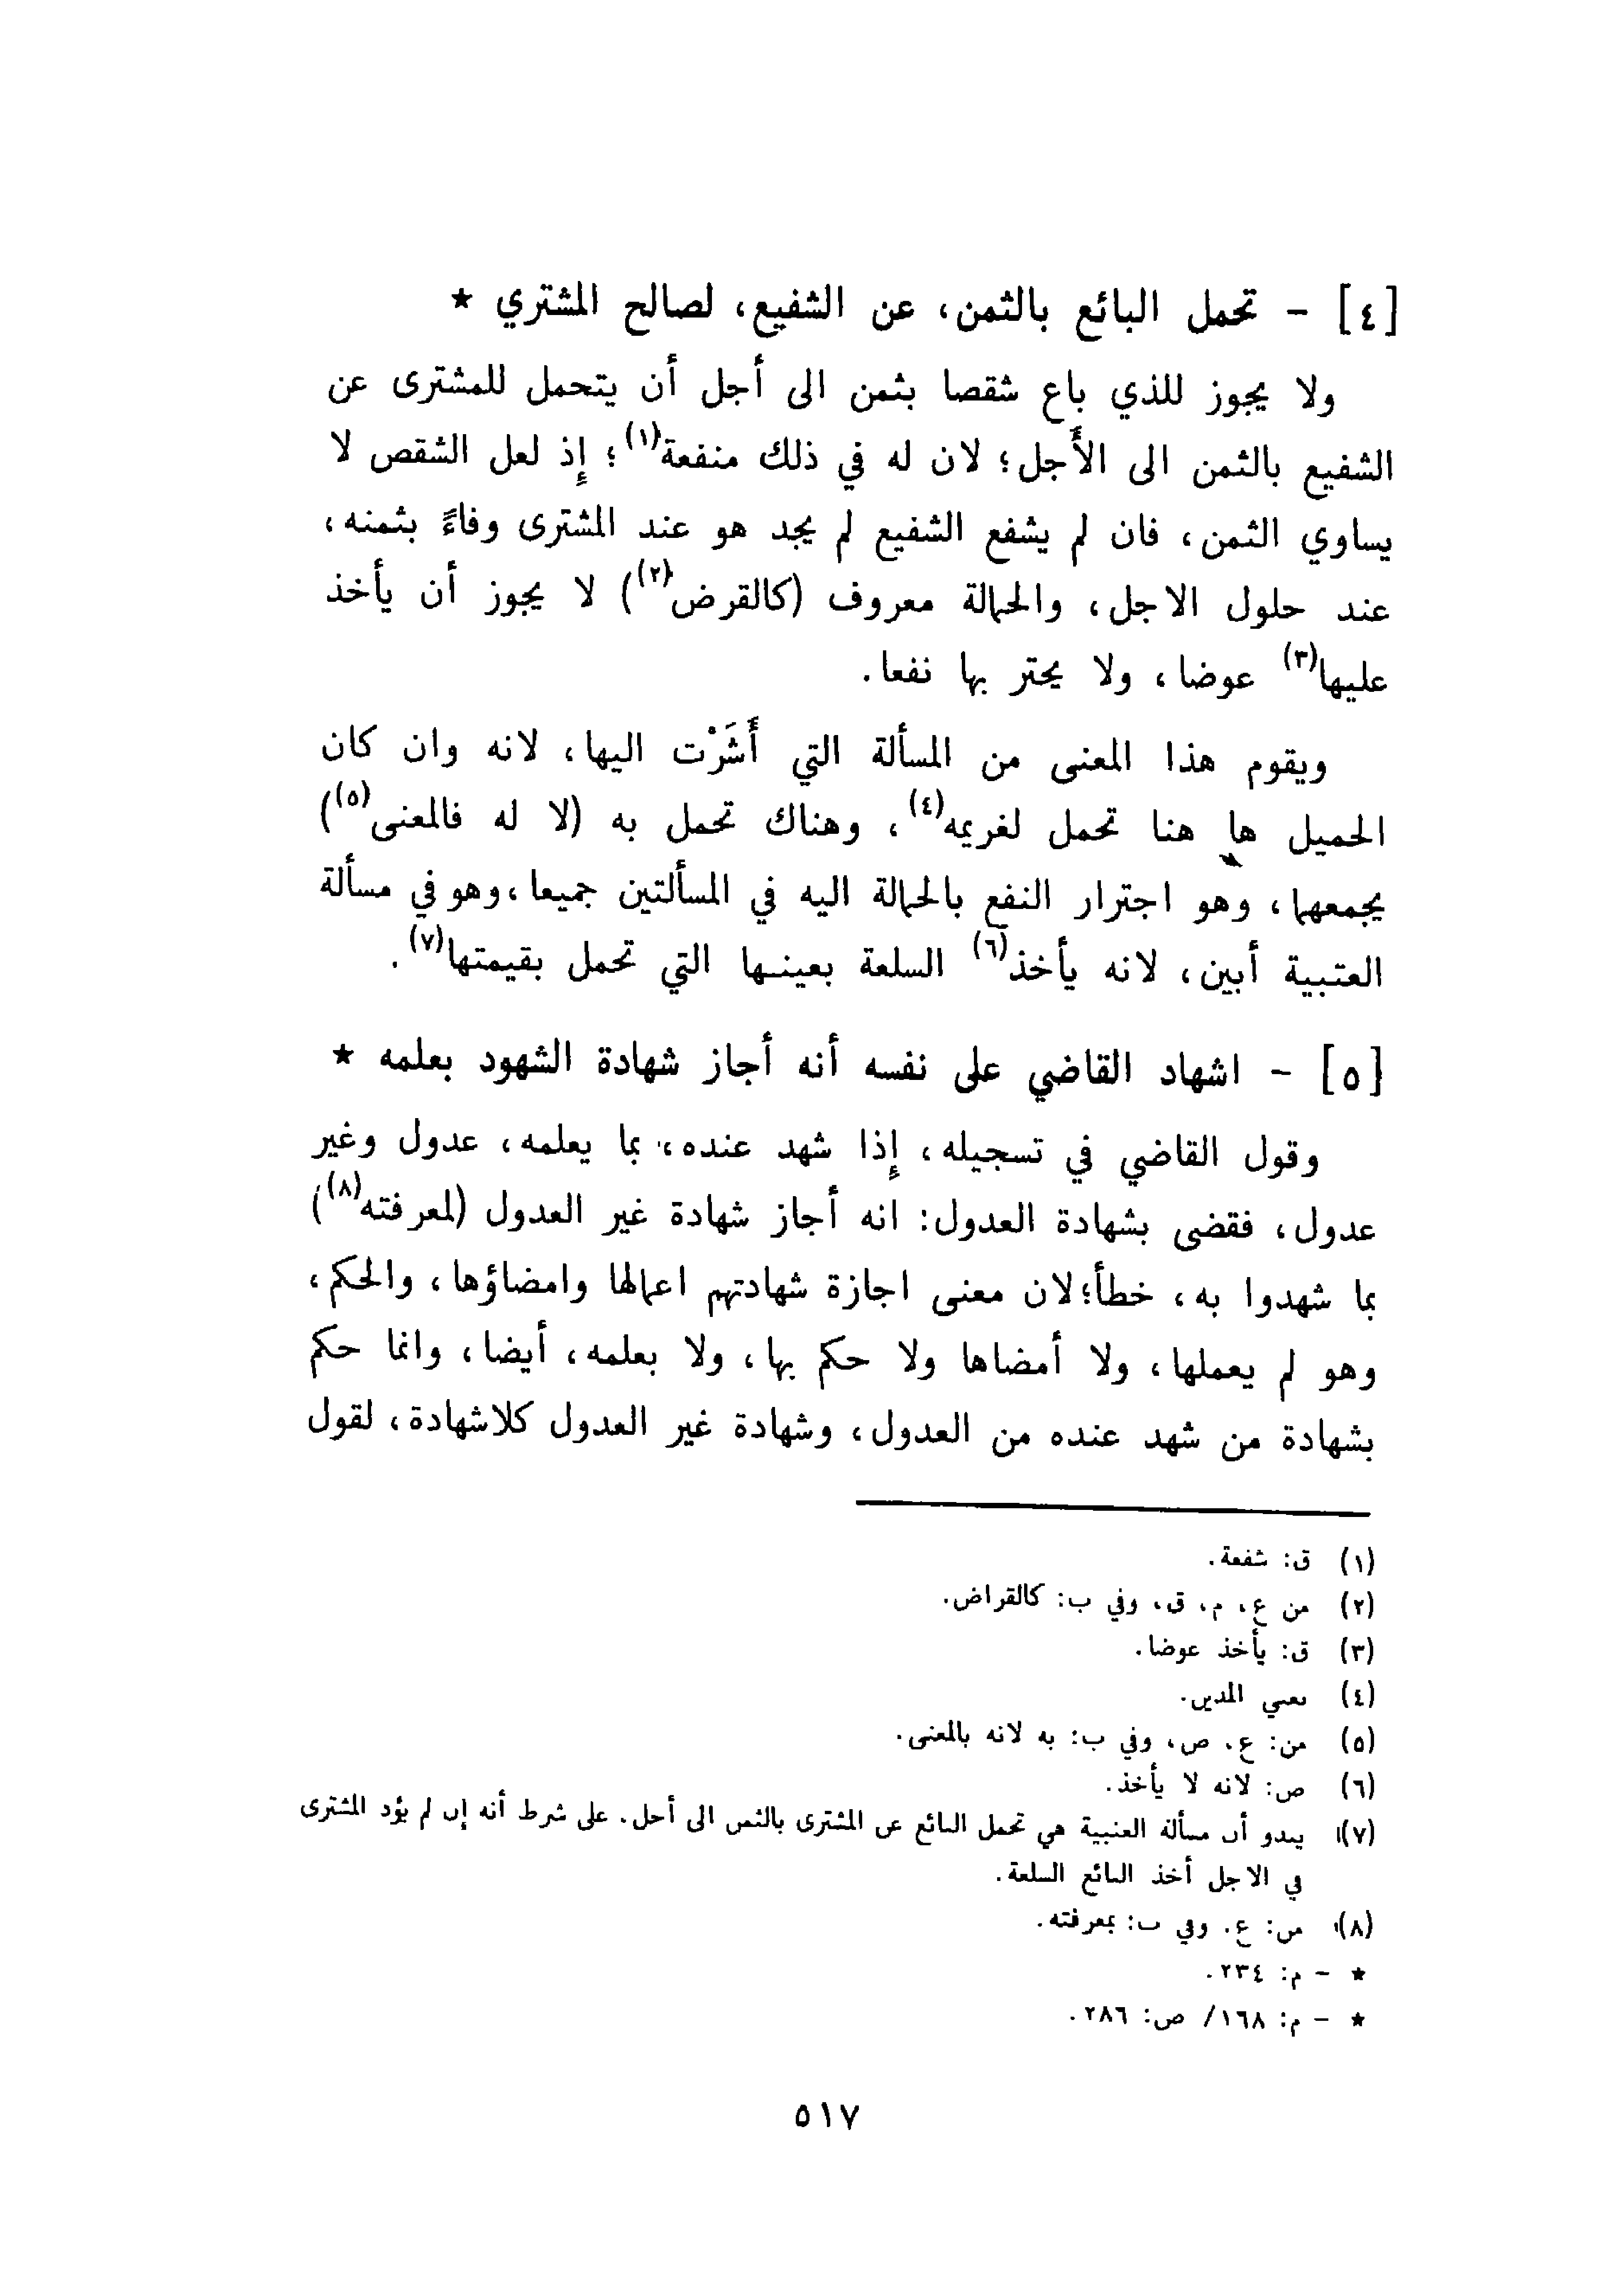 [٤] - تحمل البائع بالثمن، عن الشفيع، لصالح المشتري ★
ولا يجوز للذي باع شقصا بثمن الى أجل أن يتحمل للمشترى عن
الشفيع بالثمن الى الأجل؛ لان له في ذلك منفعة(١)؛ إذ لعل الشقص لا
يساوي الثمن، فان لم يشفع الشفيع لم يجد هو عند المشترى وفاءً بثمنه،
عند حلول الاجل، والحمالة معروف (كالقرض(٢)) لا يجوز أن يأخذ
عليها(٣) عوضا، ولا يجتر بها نفعا.
ويقوم هذا المعنى من المسألة التي أَشَرْت اليها، لانه وان كان
الحميل ها هنا تحمل لغريمه(٤)، وهناك تحمل به (لا له فالمعنى(٥))
يجمعهما، وهو اجترار النفع بالحمالة اليه في المسألتين جميعا، وهو في مسألة
العتبية أبين، لانه يأخذ(٦) السلعة بعينها التي تحمل بقيمتها(٧).
[٥] - اشهاد القاضي على نفسه أنه أجاز شهادة الشهود بعلمه ★
وقول القاضي في تسجيله، إذا شهد عنده، بما يعلمه، عدول وغير
عدول، فقضى بشهادة العدول: انه أجاز شهادة غير العدول (لمعرفته(٨))
بما شهدوا به، خطأ؛ لان معنى اجازة شهادتهم اعمالها وامضاؤها، والحكم،
وهو لم يعملها، ولا أمضاها ولا حكم بها، ولا بعلمه، أيضا، وانما حكم
بشهادة من شهد عنده من العدول، وشهادة غير العدول كلاشهادة، لقول
(١) ق: شفعة.
(٢) من ع، م، ق، وفي ب: كالقراض.
(٣) ق: يأخذ عوضا.
(٤) يعني المدين.
(٥) من: ع، ص، وفي ب: به لانه بالمعنى.
(٦) ص: لانه لا يأخذ.
(٧) يبدو أن مسألة العتبية هي تحمل البائع عن المشترى بالثمن الى أجل. على شرط أنه إن لم يؤد المشترى
في الاجل أخذ البائع السلعة.
(٨) من: ع. وفي ب: بمعرفته.
★ - م: ٢٣٤.
★ - م: ١٦٨/ ص: ٢٨٦.
٥١٧